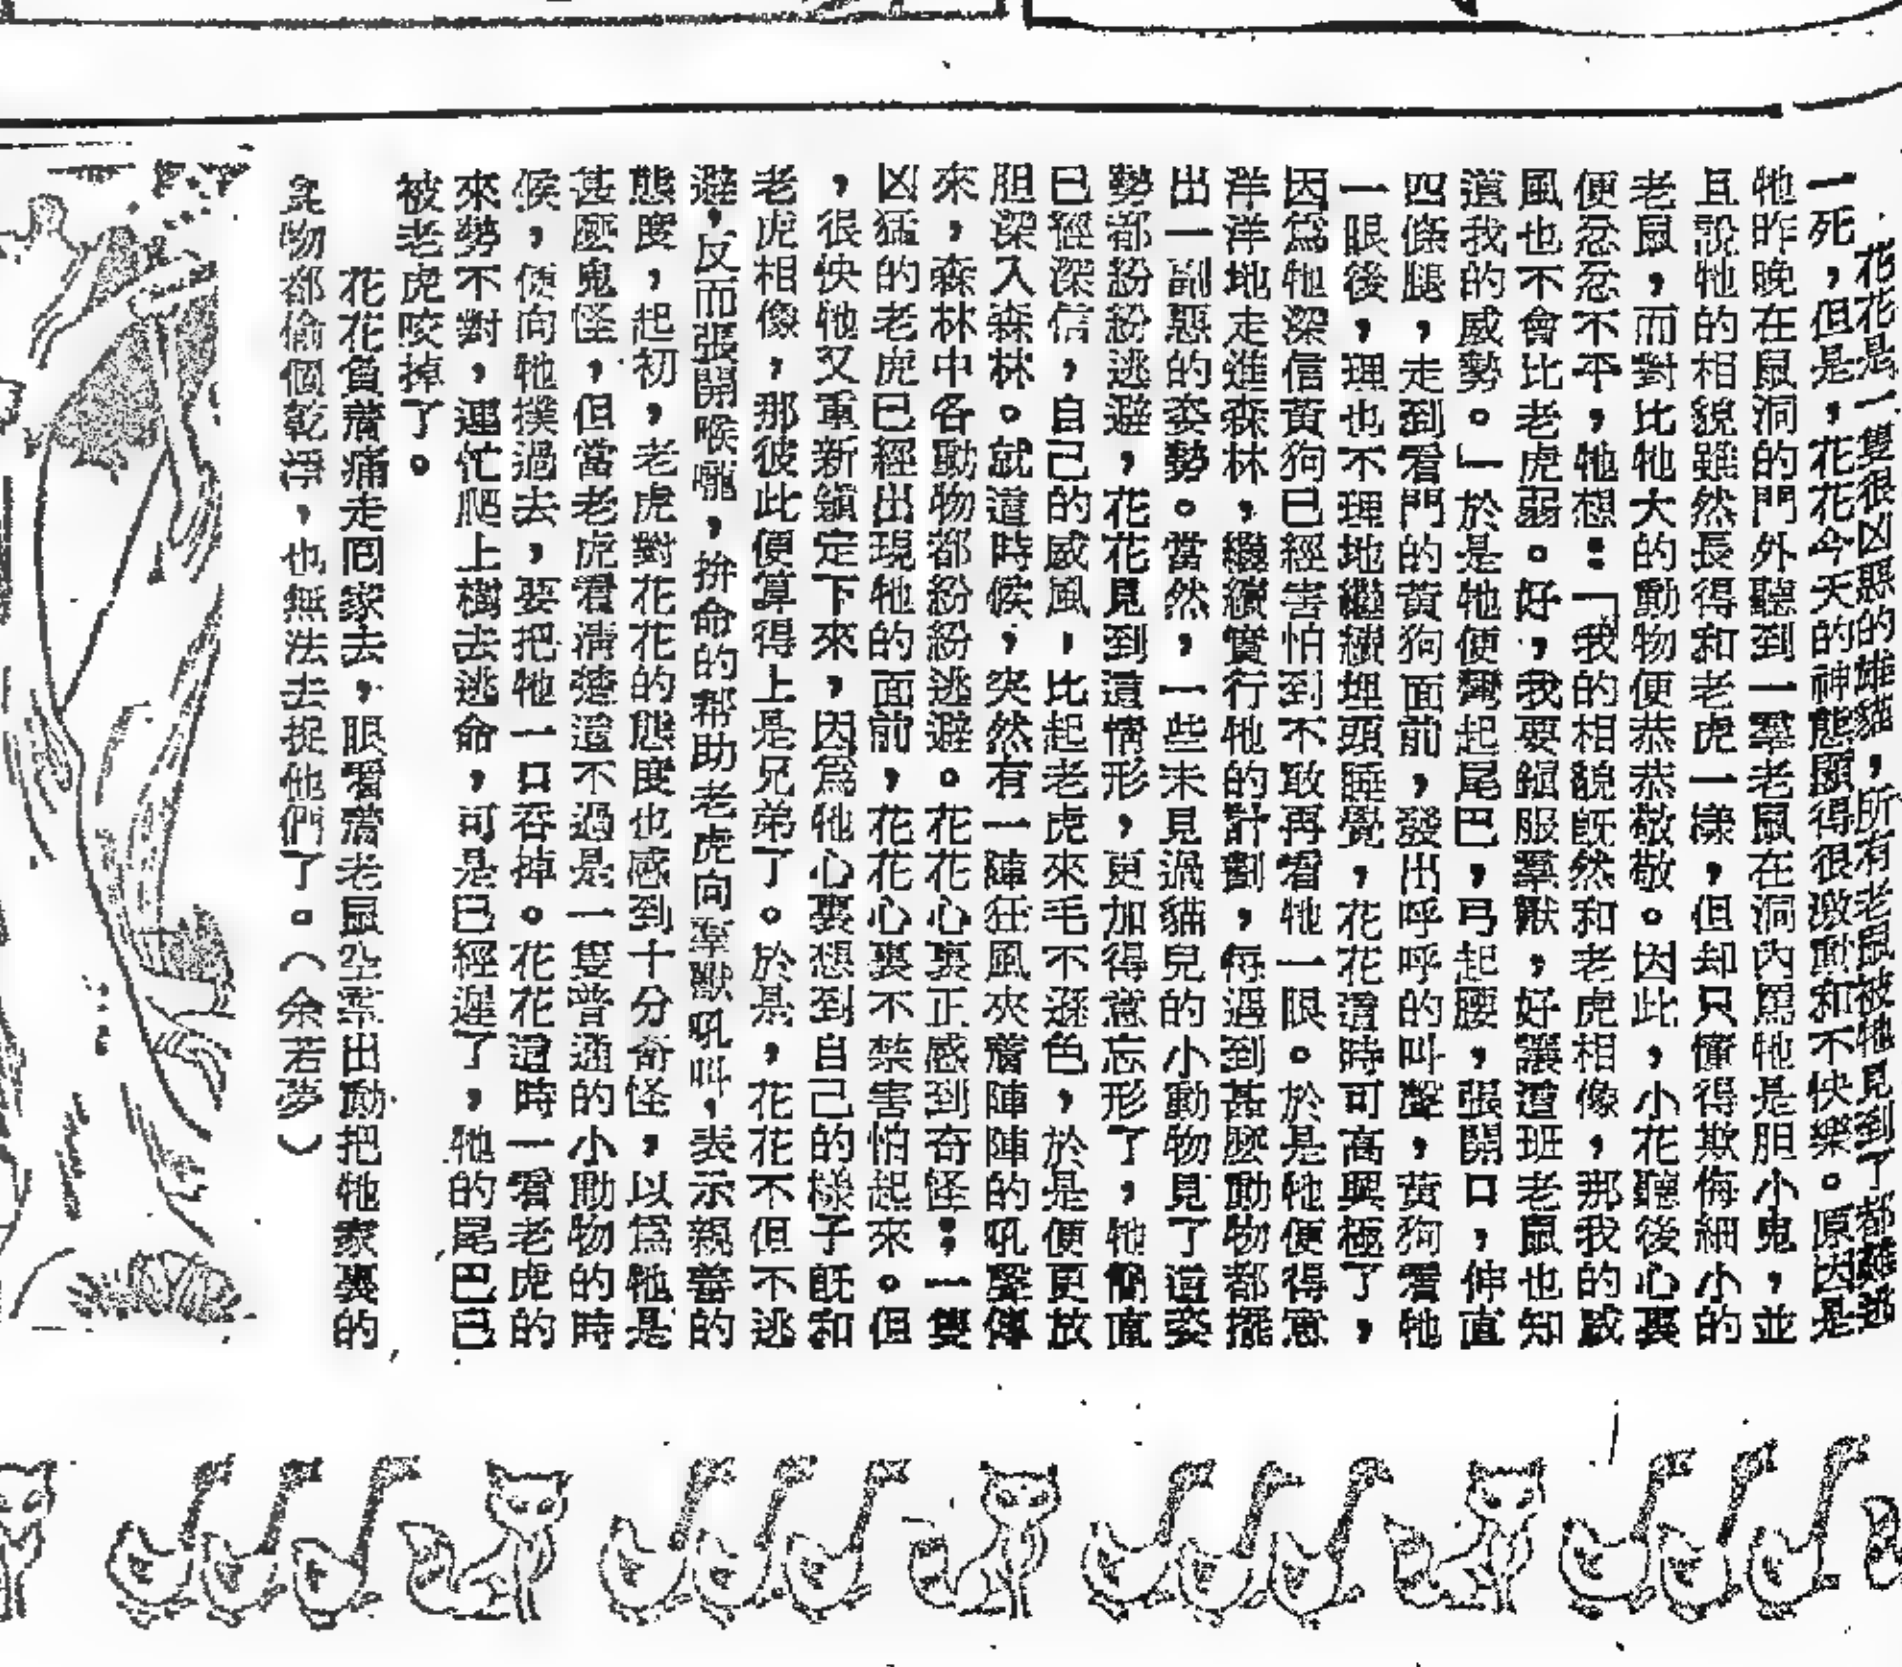 花花是一隻很凶惡的雄貓，所有老鼠被牠見到了都難逃
一死，但是，花花今天的神態顯得很激動和不快樂。原因是
牠昨晚在鼠洞的門外聽到一羣老鼠在洞內罵牠是胆小鬼，並
且說牠的相貌雖然長得和老虎一樣，但却只懂得欺侮細小的
老鼠，而對比牠大的動物便恭恭敬敬。因此，小花聽後心裏
便忿忿不平，牠想：「我的相貌旣然和老虎相像，那我的威
風也不會比老虎弱。好，我要鎮服羣獸，好讓這班老鼠也知
道我的威勢。」於是牠便彎起尾巴，弓起腰，張開口，伸直
四條腿，走到看門的黃狗面前，發出呼呼的叫聲，黃狗看牠
一眼後，理也不理地繼續埋頭睡覺，花花這時可高興極了，
因爲牠深信黃狗已經害怕到不敢再看牠一眼。於是牠便得意
洋洋地走進森林，繼續實行牠的計劃，每遇到甚麼動物都擺
出一副惡的姿勢。當然，一些未見過貓兒的小動物見了這姿
勢都紛紛逃避，花花見到這情形，更加得意忘形了，牠簡直
已經深信，自己的威風，比起老虎來毛不遜色，於是便更放
胆深入森林。就這時候，突然有一陣狂風夾着陣陣的吼聲傳
來，森林中各動物都紛紛逃避。花花心裏正感到奇怪：一隻
凶猛的老虎已經出現牠的面前，花花心裏不禁害怕起來。但
，很快牠又重新鎮定下來，因爲牠心裏想到自己的樣子旣和
老虎相像，那彼此便算得上是兄弟了。於是，花花不但不逃
避，反而張開喉嚨，拚命的帮助老虎向羣獸吼叫，表示親善的
態度，起初，老虎對花花的態度也感到十分奇怪，以爲牠是
甚麼鬼怪，但當老虎看淸楚這不過是一隻普通的小動物的時
候，便向牠撲過去，要把牠一口吞掉。花花這時一看老虎的
來勢不對，連忙爬上樹去逃命，可是已經遲了，牠的尾巴已
被老虎咬掉了。
花花負着痛走囘家去，眼看着老鼠空羣出動把牠家裏的
食物都偷個乾淨，也無法去捉他們了。（余若夢）